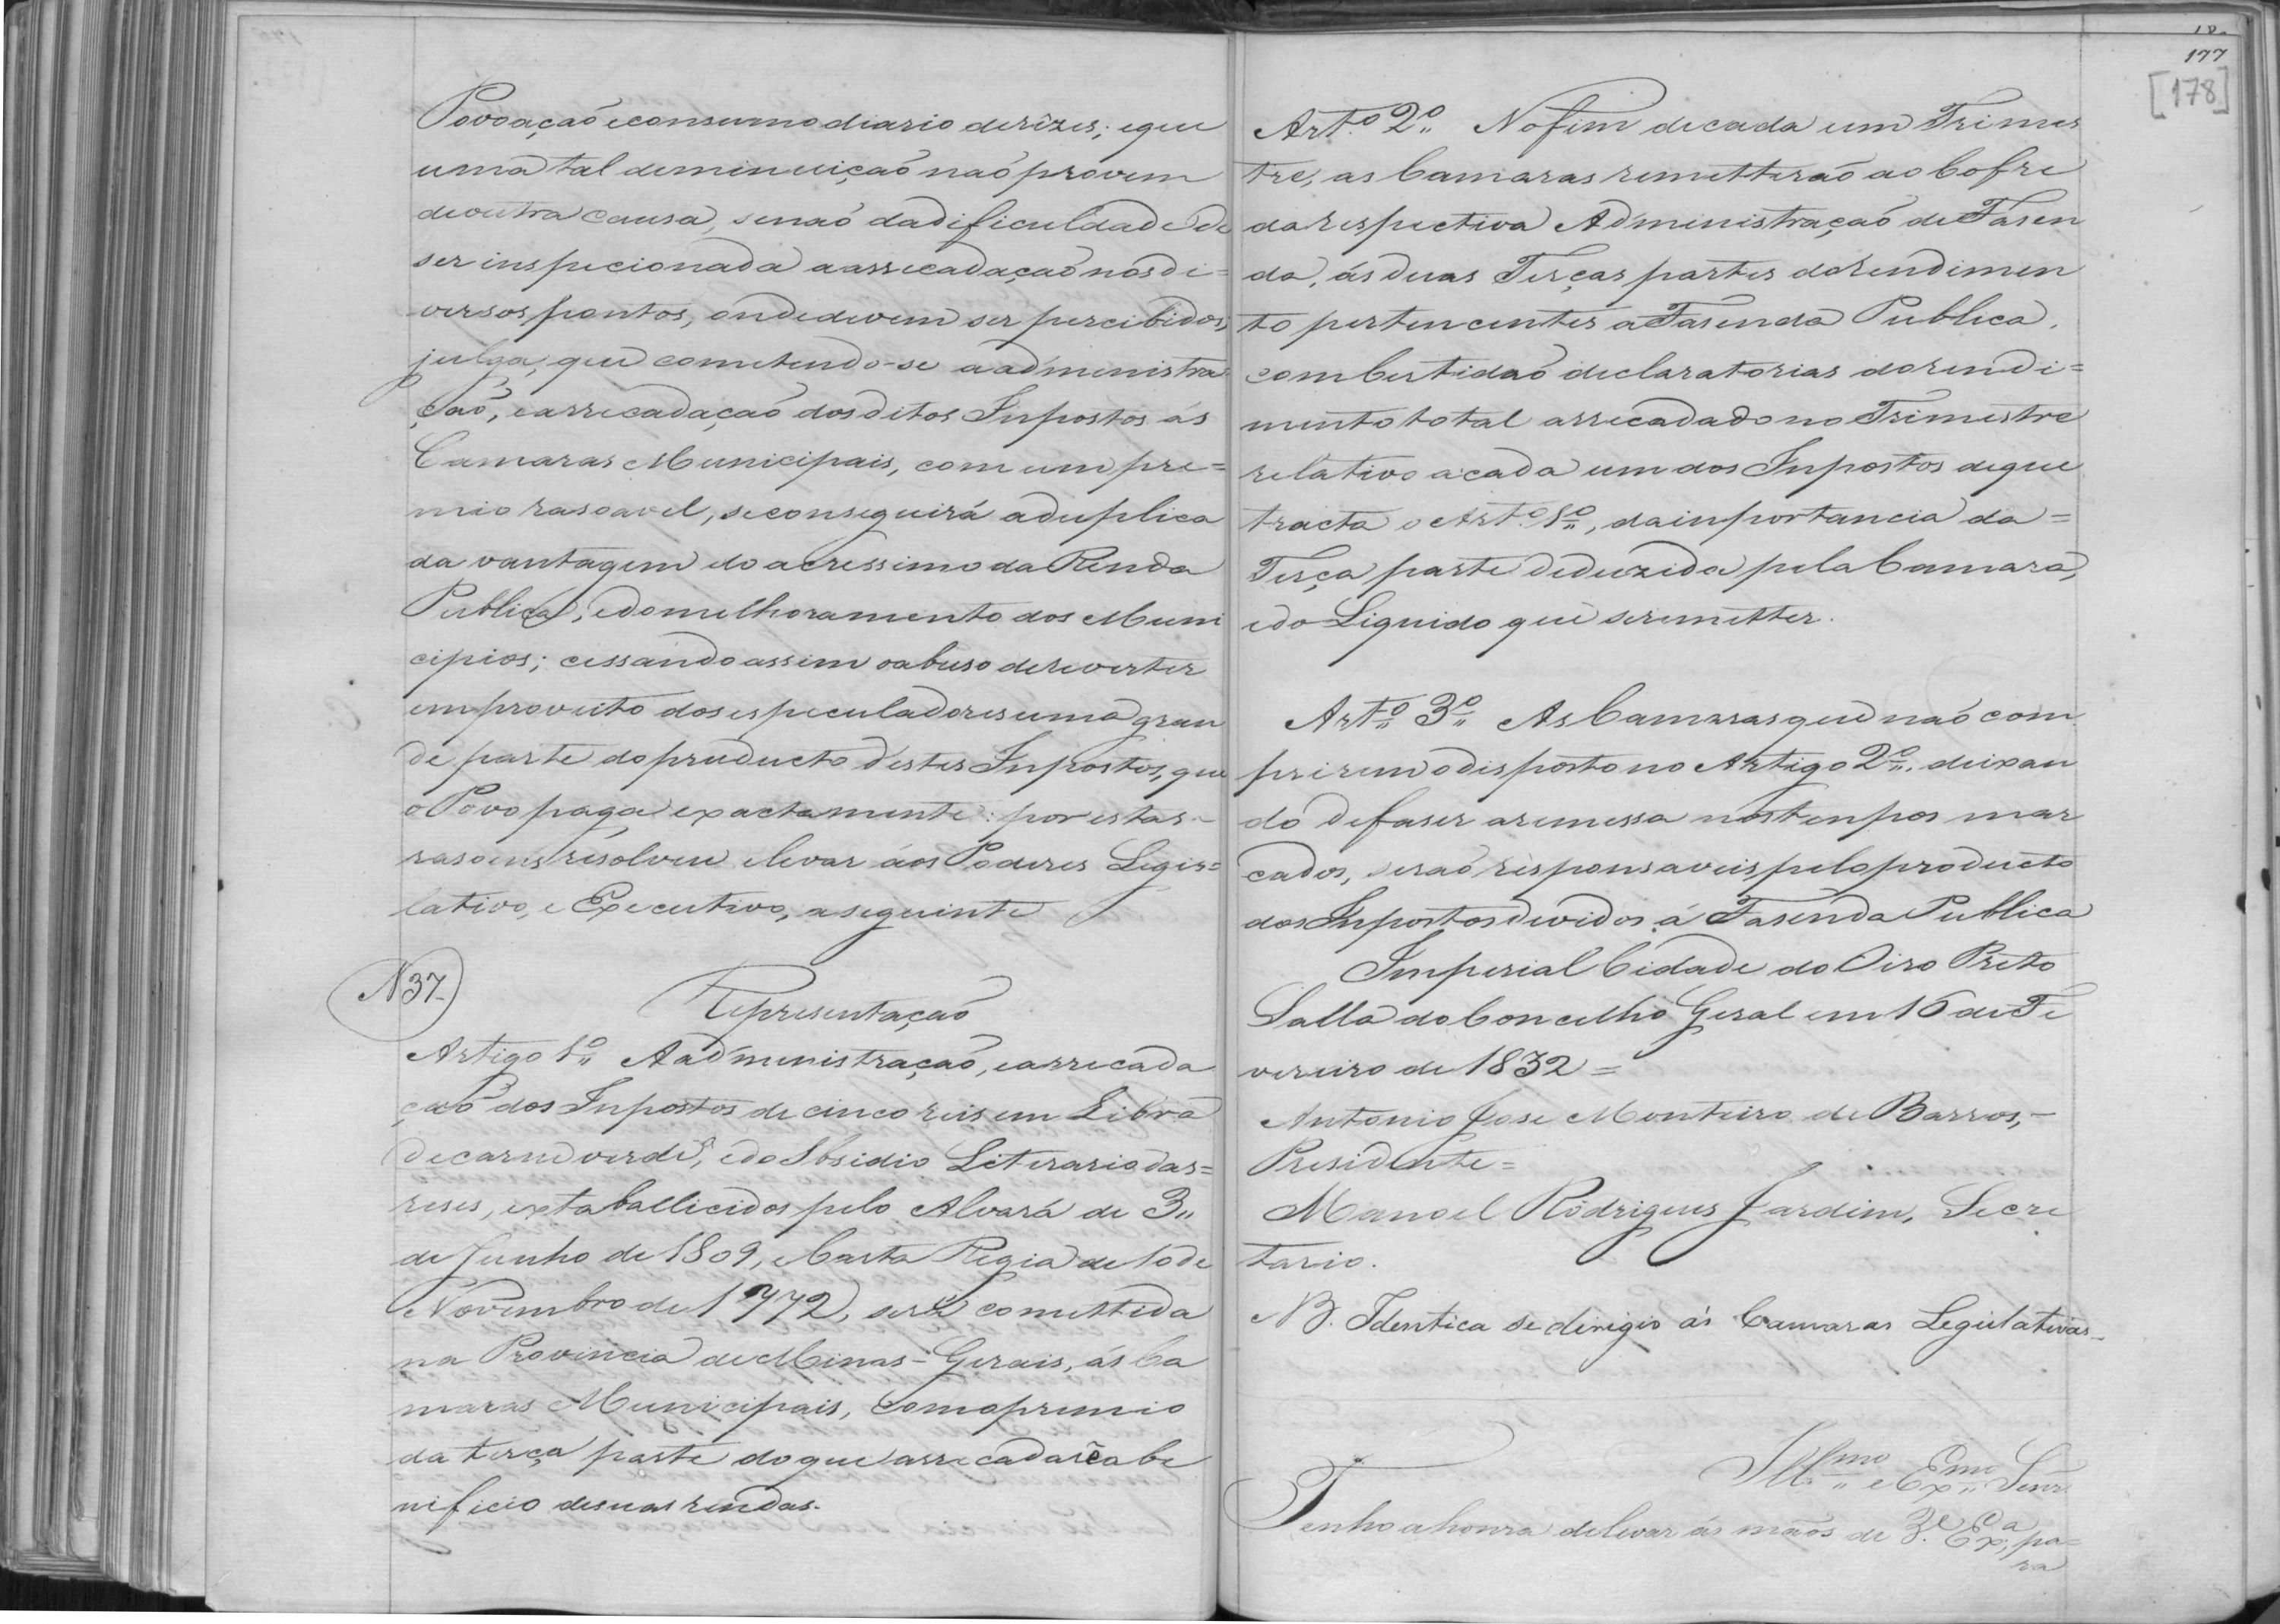 Povoaçaõ e consumo diario de rêzes; e que
uma tal deminuiçaõ naõ provem
de outra causa, senaõ da dificuldade de
ser inspecionada a arrecadaçaõ nos di=
versos pontos, onde devem ser percibidos,
julga, que cometendo-se a administra
çaõ, e arrecadaçaõ dos ditos Inpostos ás
Camaras Municipais, com um pre=
mio rasoavel, se conseguirá a duplica
da vantagem do acressimo da Renda
Publica, e do melhoramento dos Muni
cipios; cessando assim o abuso de reverter
em proveito dos especuladores uma gran
de parte do producto destes Inpostos, que
o Povo paga exactamente: por estas-
rasoens resolveu elevar áos Poderes Legis=
lativo, e Executivo, a seguinte
N 37.
Representaçaõ
Artigo 1º,, A administraçaõ, e arrecada
çaõ dos Inpostos de cinco reis em Libra
de carne verde, e do Sbsidio Literario das=
reses, extabellicidos pelo Alvará de 3,,
de Junho de 1809, e Carta Regia de 10 de
Novembro de 1772, será comettida
na Provincia de Minas-Gerais, ás Ca
maras Municipais, com o premio
da terça parte do que arrecadarẽ a be
nificio de suas rendas.
177
[178]
Art.º 2º,, No fim de cada um Trimes
tre, as Camaras remetteraõ ao Cofre
da respectiva Administraçaõ de Fasen
da, ás duas Terças partes do rendimen
to pertencentes a Fasenda Publica,
com Certidaõ declaratorias do rendi=
mento total arrecadado no Trimestre
relativo a cada um dos Inpostos de que
tracta o Art.º 1º,,, da inportancia da=
Terça parte deduzida pela Camara,
e do Liquido que se remetter.
Artº,, 3º,, As Camaras que naõ com
prirem o disposto no Artigo 2º,,. deixan
do de faser a remessa nos tenpos mar
cados, seraõ responsaveis pelo producto
dos Inpostos devidos á Fasenda Publica
Imperial Cidade do Oiro Preto
Salla do Concelho Geral em 16 de Fe
vereiro de 1832=
Antonio Jose Monteiro de Barros,-
Presidente=
Manoel Rodrigues Jardim, Secre
tario.
NB. Identica se dirigio ás Camaras Legislativas-
Ill.mo,, e Ex.mo,, Senr.
Tenho a honra de levar ás mãos de V. Ex.ca, pa=
ra